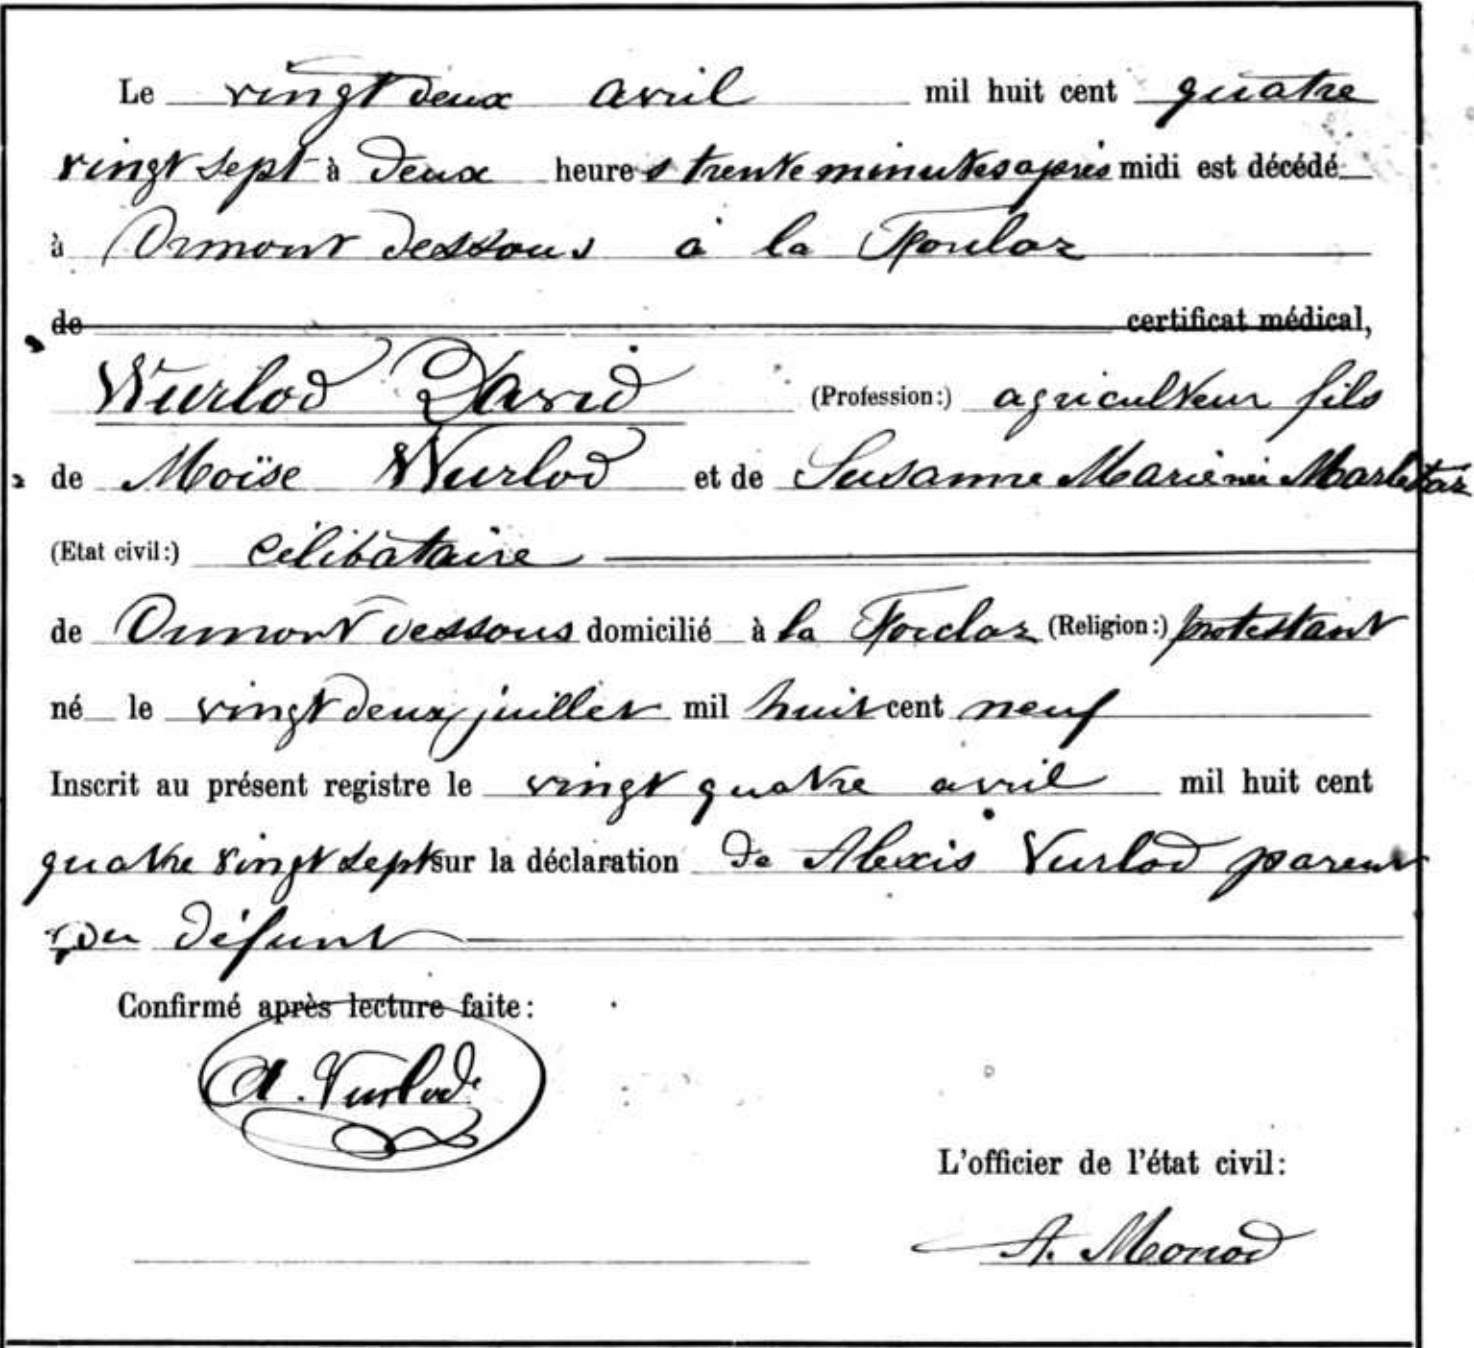 Le vingt deux avril mil huit cent quatre
vingt sept à deux heures trente minutes après midi est décédé
à Ormont dessous à la Forclaz
de certificat médical,
Wurlod David (Profession:) agriculteur fils
de Moïse Wurlod et de Susanne Marie née Marlétaz
(Etat civil:) célibataire
de Ormont dessous domicilié à la Forclaz (Religion:) protestant
né le vingt deux juillet mil huit cent neuf
Inscrit au présent registre le vingt quatre avril mil huit cent
quatre vingt sept sur la déclaration de Alexis Vurlod parent
du défunt
Confirmé après lecture faite:
A. Vurlod
L'officier de l'état civil:
A. Monod